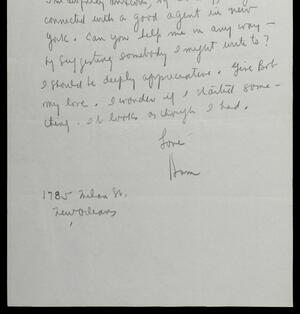 connected with a good agent in New
York. Can you help me in any way –
by suggesting somebody I might write to?
I should be deeply appreciative. Give Bob
my love. I wonder if I started some-
thing. It looks as though I had.
Love
1785 Milan St.
New Orleans